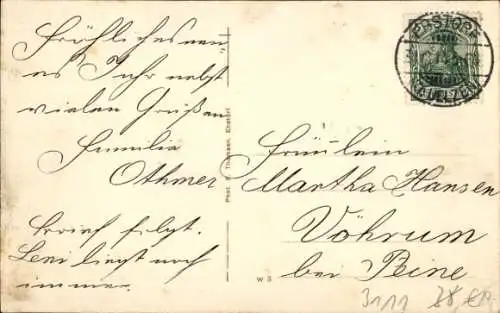 Fröhliches neu-
es Jahr nebst
vielen Grüßen
Familie
Othmer
Brief folgt.
Leni liegt noch
immer.
Phot. H. Thomsen, Ebstorf
W S
EBSTORF
Fräulein
Martha Hansen
Vöhrum
bei Peine
3111 28,